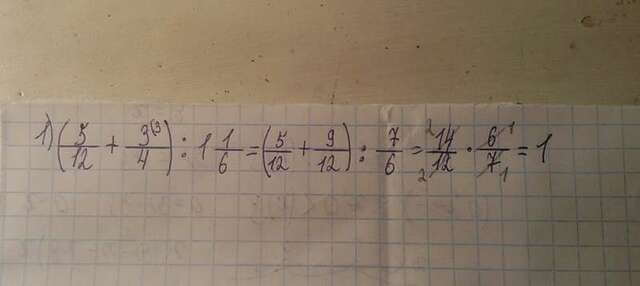 1) (5/12 + 3⁽³/4) : 1 1/6 = (5/12 + 9/12) : 7/6 = ²14/12₂ · 6¹/7₁ = 1